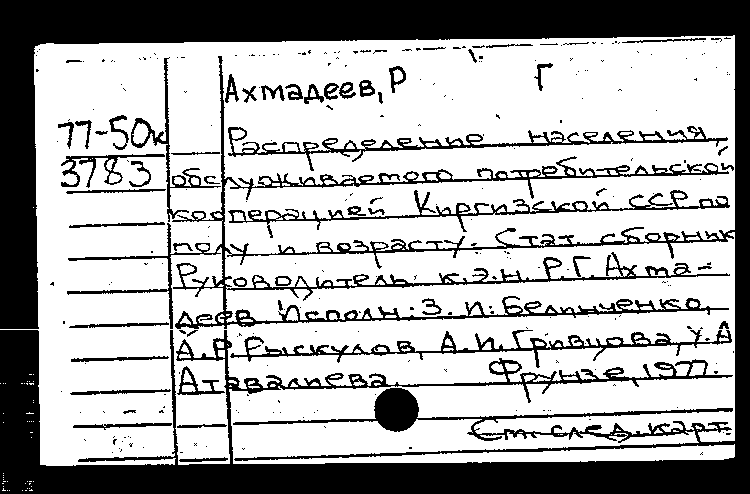 Ахмадеев, Р Г
77-50к Распределение населения,
3783 обслуживаемого потребительской
кооперацией Киргизской ССР по
полу и возрасту. Стат. сборник
Руководитель к.э.н. Р.Г. Ахма-
деев Исполн.: З.И. Белинченко,
А.Р. Рыскулов, А.И. Гривцова, У.А
Атавалиева. Фрунзе, 1977.
См. след. карт.